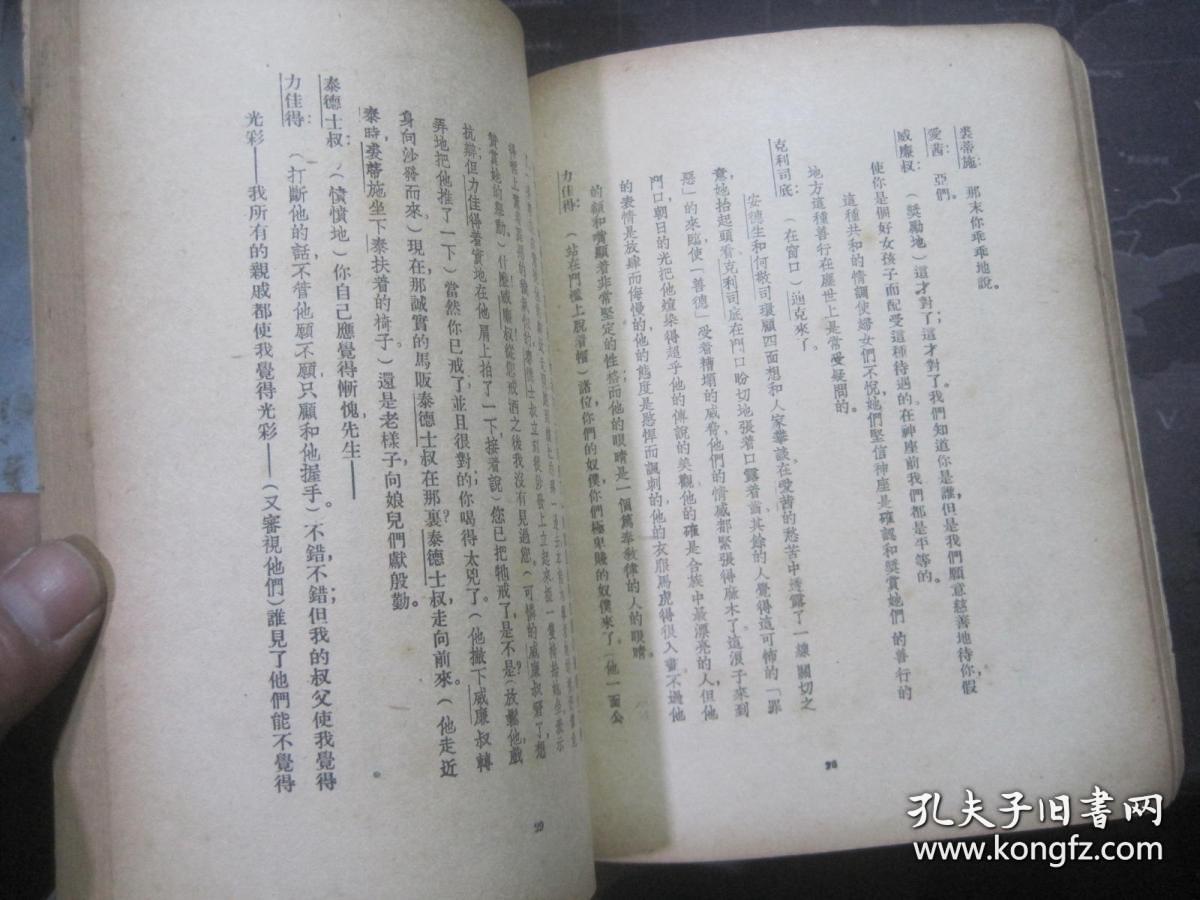 裘蒂施：　那末你乖乖地說。
愛茜：　亞們。
威廉叔：　（獎勵地）這才對了；這才對了。我們知道你是誰，但是我們願意慈善地待你，假
使你是個好女孩子而配受這種待遇的。在神座前我們都是平等的。
這種共和的情調使婦女們不悅，她們堅信神座是確認和獎賞她們的善行的
地方，這種善行在塵世上是常受疑問的。
克利司底：　（在窗口）迪克來了。
安德生和何敬司環顧四面，想和人家攀談。在愛茜的愁苦中透露了一線關切之
意，她抬起頭看。克利司底在門口盼切地張着口露着齒。其餘的人覺得這可怖的「罪
惡」的來臨，使「善德」受着糟塌的威脅，他們的情感都緊張得麻木了。這浪子來到
門口，朝日的光把他煊染得超乎他的傳說的美觀。他的確是合族中最漂亮的人，但他
的表情是放肆而侮慢的，他的態度是惡悍而諷刺的，他的衣服馬虎得很入畫。不過他
的額和嘴顯着非常堅定的性格，而他的眼睛是一個篤奉教律的人的眼睛。
力佳得：　（站在門檻上脫着帽）諸位，你們的奴僕，你們極卑賤的奴僕來了。（他一面公
28
得賞上
贊賞她的舉動。）什麽，威廉叔！從您戒酒之後我沒有見過您。（可憐的威廉叔窘了，想
抗辯；但力佳得着實地在他肩上拍了一下，接着說）您已把牠戒了，是不是？（放鬆他，戲
弄地把他推了一下）當然你已戒了，並且很對的；你喝得太兇了。（他撇下威廉叔，轉
身向沙發而來。）現在，那誠實的馬販泰德士叔在那裏？泰德士叔，走向前來。（他走近
泰，時裘蒂施坐下泰扶着的椅子）還是老樣子，向娘兒們獻殷勤。
泰德士叔：　（憤憤地）你自己應覺得慚愧，先生——
力佳得：　（打斷他的話，不管他願不願，只顧和他握手）。不錯，不錯；但我的叔父使我覺得
光彩——我所有的親戚都使我覺得光彩——（又審視他們）誰見了他們能不覺得
29
孔夫子旧书网
www.kongfz.com